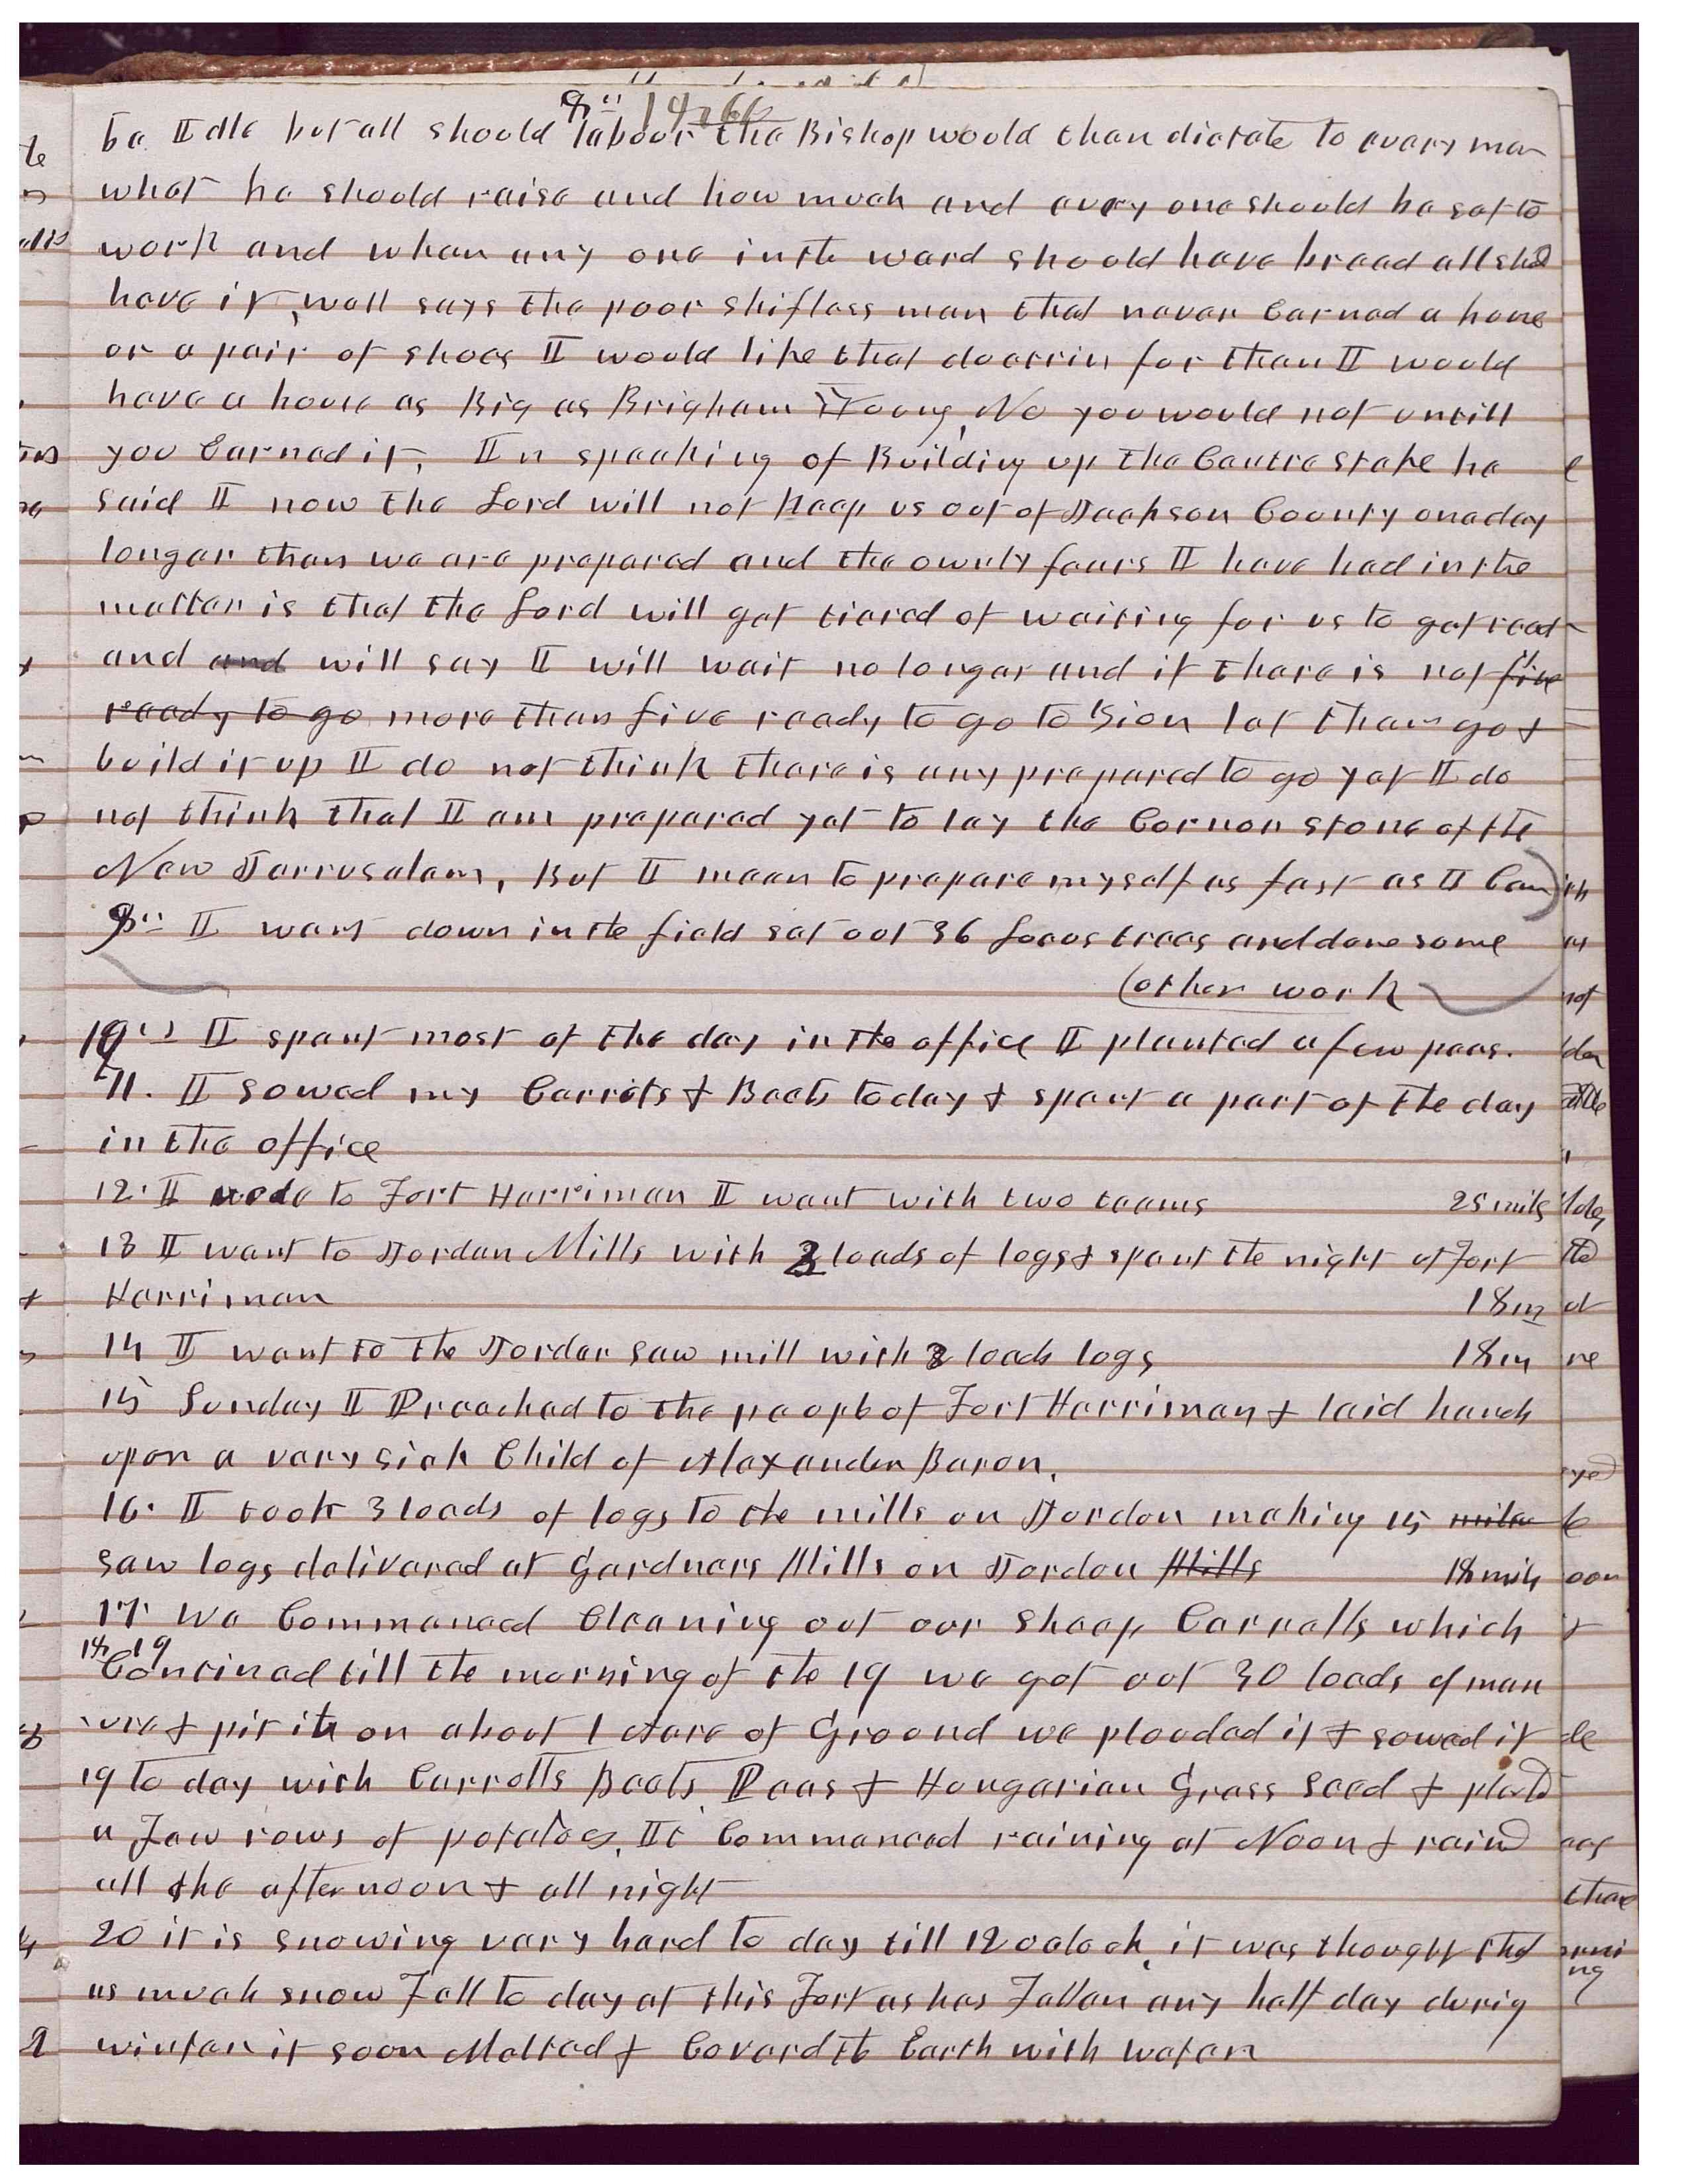 8" 1866
be Idle but all should labour the Bishop would then dictate to every man
what he should raise and how much and every one should be set to
work and when any one in the ward should have bread all should
have it, well says the poor shifless man that never Earned a house
or a pair of shoes I would like that doctrin for then I would
have a house as Big as Brigham Young, No you would not untill
you Earned it, In speaking of Building up the Centre stake he
said I now the Lord will not keep us out of Jackson County one day
longer than we are prepared and the ownly fears I have had in the
matter is that the Lord will get tiered of waiting for us to get ready
and and will say I will wait no longer and if there is not five
ready to go more than five ready to go to Zion let them go &
build it up I do not think there is any prepared to go yet I do
not think that I am prepared yet to lay the Corner stone of the
New Jerrusalem, But I mean to prepare myself as fast as I Can
9" I went down in the field set out 36 Locus trees and done some
(other work
10" I spent most of the day in the office I planted a few peas.
11. I sowed my Carrots & Beets today & spent a part of the day
in the office
12. I rode to Fort Harriman I went with two teams 25 mils
13 I went to Jordan Mills with 3 loads of logs & spent the night at Fort
Harriman 18 m
14 I went to the Jordan saw mill with 3 loads logs 18 m
15 Sunday I Preached to the people of Fort Harriman & laid hands
upon a very sick Child of Alexander Baron.
16. I took 3 loads of logs to the mills on Jordon making 15 miles
saw logs delivered at Gardners Mills on Jordon Mills 18 mils
17. We Commenced Cleaning out our sheep Corralls which
18, 19
Continued till the morning of the 19 we got out 30 loads of man
ure & pit it on about 1 Acre of Ground we plouded it & sowed it
19 to day with Carrotts Beets Peas & Hungarian Grass seed & planted
a Few rows of potatoes. It Commenced raining at Noon & raind
all the afternoon & all night
20 it is snowing very hard to day till 12 oclock, it was thought that
as much snow Fell to day at this Fort as has Fallen any half day durig
winter it soon Melted & Coverd the Earth with water